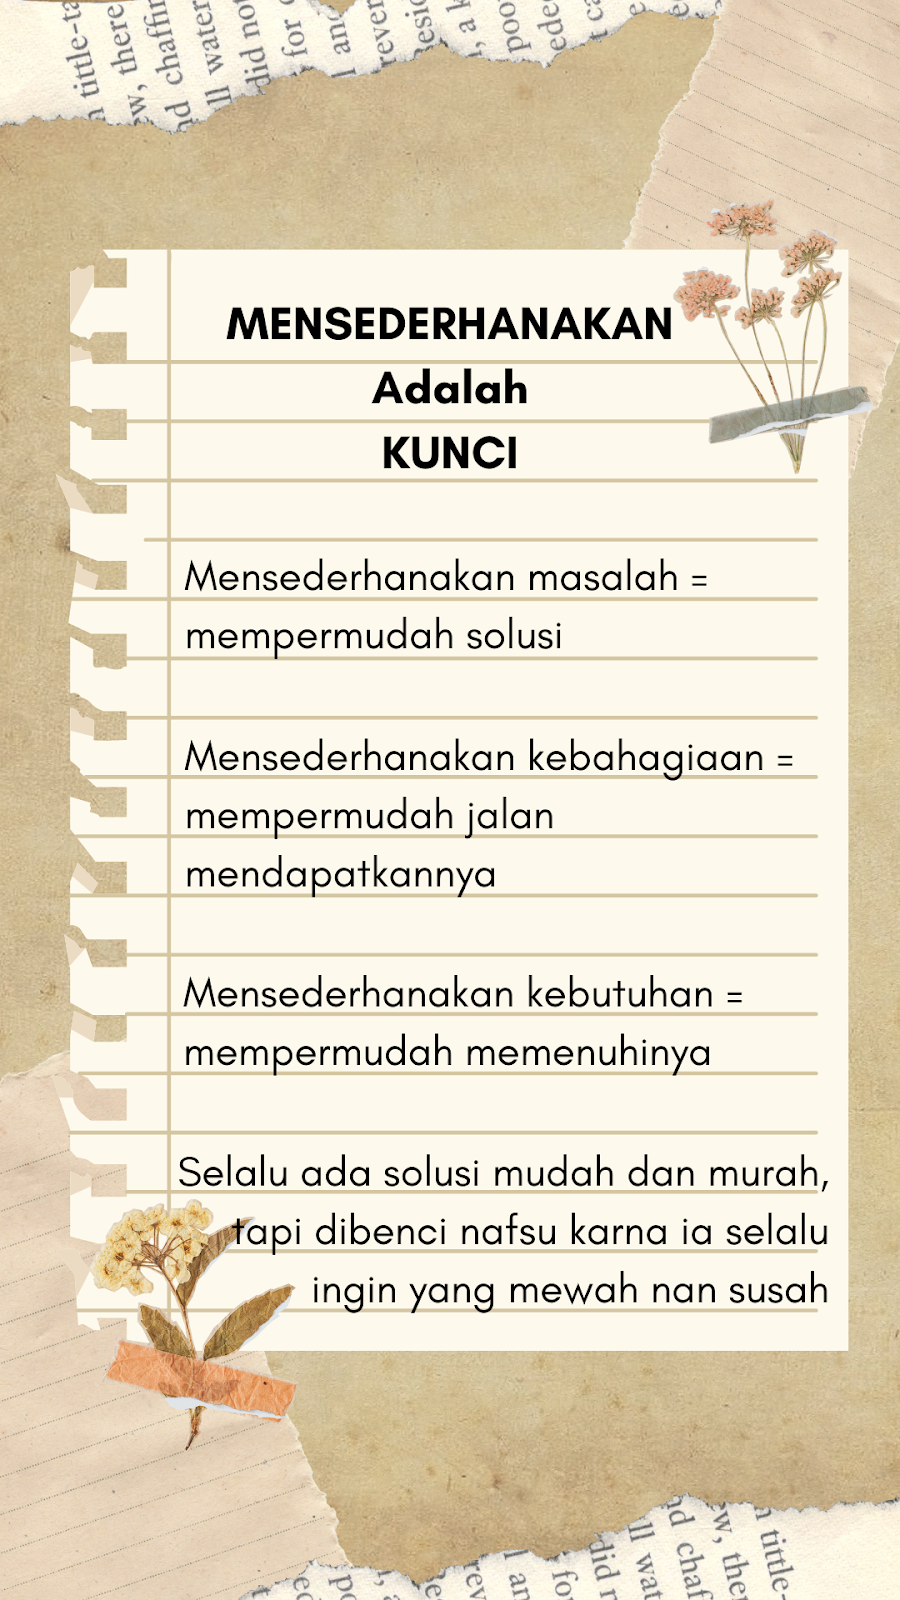 MENSEDERHANAKAN
Adalah
KUNCI
Mensederhanakan masalah =
mempermudah solusi
Mensederhanakan kebahagiaan =
mempermudah jalan
mendapatkannya
Mensederhanakan kebutuhan =
mempermudah memenuhinya
Selalu ada solusi mudah dan murah,
tapi dibenci nafsu karna ia selalu
ingin yang mewah nan susah